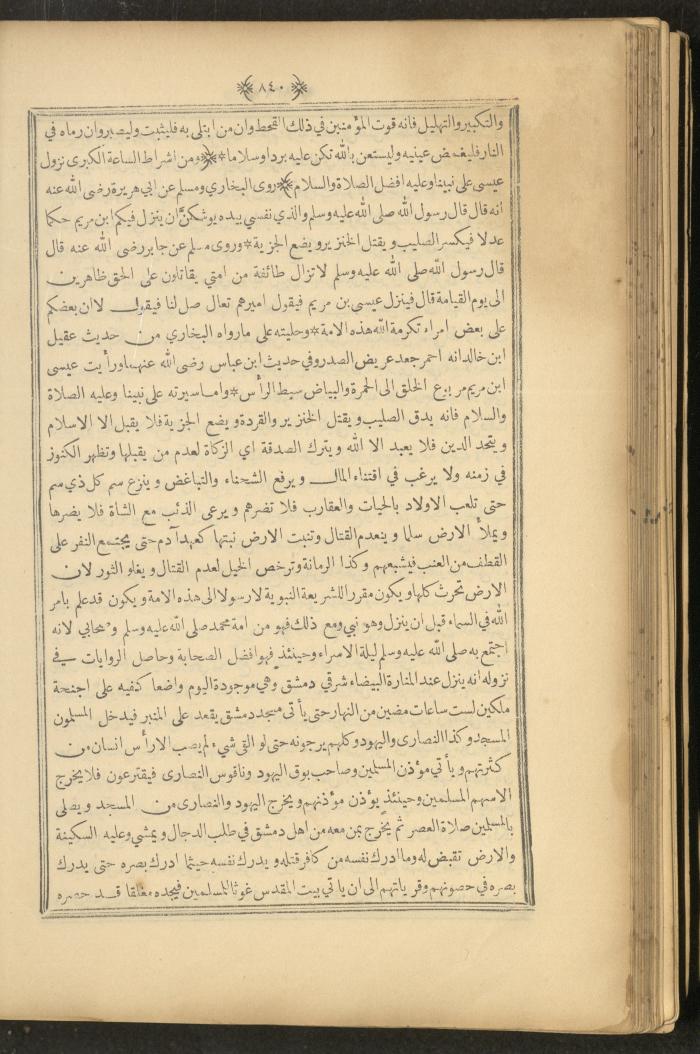 ٨٤٠
والتكبير والتهليل فانه قوت المؤمنين في ذلك القحط وان من ابتلى به فليثبت وليصبر وان رماه في
النار فليغمض عينيه وليستعن بالله تكن عليه بردا وسلاما * ومن اشراط الساعة الكبرى نزول
عيسى على نبينا وعليه افضل الصلاة والسلام * روى البخاري ومسلم عن ابي هريرة رضى الله عنه
انه قال قال رسول الله صلى الله عليه وسلم والذي نفسي بيده يوشكن أن ينزل فيكم ابن مريم حكما
عدلا فيكسر الصليب و يقتل الخنزير ويضع الجزية * وروى مسلم عن جابر رضى الله عنه قال
قال رسول الله صلى الله عليه وسلم لا تزال طائفة من امتي يقاتلون على الحق ظاهرين
الى يوم القيامة قال فينزل عيسى بن مريم فيقول اميرهم تعال صل لنا فيقول لا ان بعضكم
على بعض امراء تكرمة الله هذه الامة * وحليته على مارواه البخاري من حديث عقيل
ابن خالد انه احمر جعد عريض الصدر وفي حديث ابن عباس رضى الله عنهما ورأيت عيسى
ابن مريم مربوع الخلق الى الحمرة والبياض سيط الرأس * واما سيرته على نبينا وعليه الصلاة
والسلام فانه يدق الصليب و يقتل الخنزير والقردة و يضع الجزية فلا يقبل الا الاسلام
و يتحد الدين فلا يعبد الا الله و يترك الصدقة اي الزكاة لعدم من يقبلها وتظهر الكنوز
في زمنه ولا يرغب في اقتناء المال و يرفع الشحناء والتباغض و ينزع سم كل ذي سم
حتى تلعب الاولاد بالحيات والعقارب فلا تضرهم و يرعى الذئب مع الشاة فلا يضرها
و يملأ الارض سلما و ينعدم القتال وتنبت الارض نبتها كعهد آدم حتى يجتمع النفر على
القطف من العنب فيشبعهم وكذا الرمانة وترخص الخيل لعدم القتال و يغلو الثور لان
الارض تحرث كلها و يكون مقررا للشريعة النبوية لا رسولا الى هذه الامة و يكون قد علم بامر
الله في السماء قبل ان ينزل وهو نبي ومع ذلك فهو من امة محمد صلى الله عليه وسلم وصحابي لانه
اجتمع به صلى الله عليه وسلم ليلة الاسراء وحينئذ فهو افضل الصحابة وحاصل الروايات في
نزوله انه ينزل عند المنارة البيضاء شرقي دمشق وهي موجودة اليوم واضعا كفيه على اجنحة
ملكين لست ساعات مضين من النهار حتى يأتى مسجد دمشق يقعد على المنبر فيدخل المسلمون
المسجد وكذا النصارى واليهود وكلهم يرجونه حتى لو القى شيء لم يصب الا رأس انسان من
كثرتهم و يأتي مؤذن المسلمين وصاحب بوق اليهود وناقوس النصارى فيقترعون فلا يخرج
الا سهم المسلمين وحينئذ يؤذن مؤذنهم و يخرج اليهود والنصارى من المسجد و يصلى
بالمسلمين صلاة العصر ثم يخرج بمن معه من اهل دمشق في طلب الدجال و يمشي وعليه السكينة
والارض تقبض له وما ادرك نفسه من كافر قتله و يدرك نفسه حيثما ادرك بصره حتى يدرك
بصره في حصونهم وقرياتهم الى ان يأتي بيت المقدس غوثا للمسلمين فيجده مغلقا قد حصره